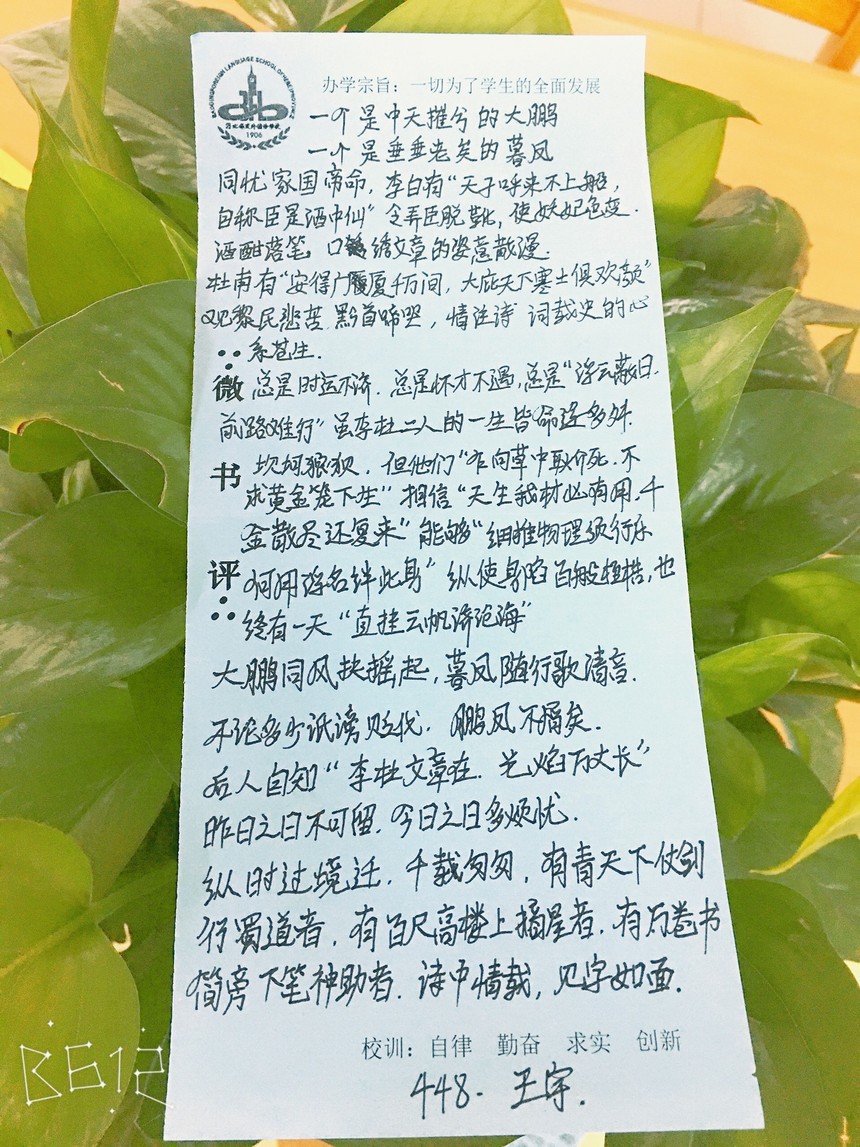 办学宗旨：一切为了学生的全面发展
1906
一个是中天摧兮的大鹏
一个是垂垂老矣的暮凤
同忧家国帝命，李白有“天子呼来不上船，
自称臣是酒中仙”令弄臣脱靴，使妖妃色变.
酒酣落笔，口绣文章的姿意散漫.
杜甫有“安得广厦千万间，大庇天下寒士俱欢颜”
见黎民悲苦.黔首啼哭，情注诗词载史的心
系苍生.
总是时运不济.总是怀才不遇，总是“浮云蔽日，
前路难行”虽李杜二人的一生皆命途多舛.
坎坷狼狈，但他们“乍向草中耿介死.不
求黄金笼下生”相信“天生我材必有用.千
金散尽还复来”能够“细推物理须行乐
何用浮名绊此身”纵使身陷百般桎梏，也
终有一天“直挂云帆济沧海”
微
书
评
大鹏同风扶摇起，暮凤随行歌清音.
不论多少诋谤贬伐.鹏凤不孤矣.
后人自知“李杜文章在.光焰万丈长”
昨日之日不可留.今日之日多烦忧.
纵时过境迁.千载匆匆，有青天下仗剑
行蜀道者.有百尺高楼上摘星者.有万卷书
简旁下笔神助者.诗中情载，见字如面.
校训：自律 勤奋 求实 创新
448. 王宇.
B612